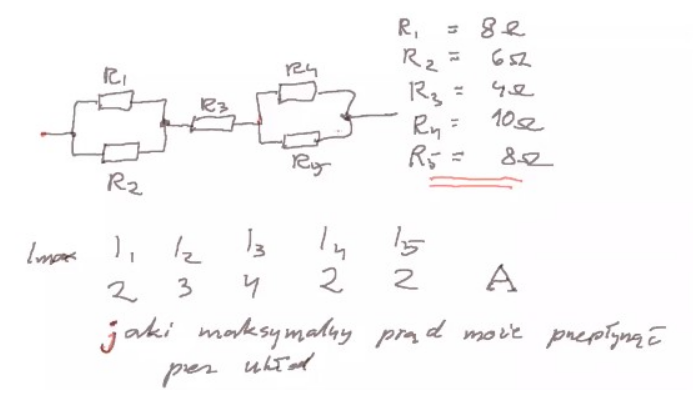 R₁ = 8Ω
R₂ = 6Ω
R₃ = 4Ω
R₄ = 10Ω
R₅ = 8Ω
R₁
R₂
R₃
R₄
R₅
Imax I₁ I₂ I₃ I₄ I₅
2 3 4 2 2 A
jaki maksymalny prąd może przepłynąć
przez układ